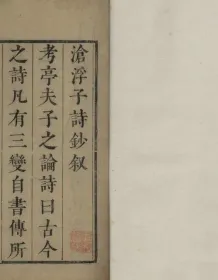 滄浮子詩鈔叙
考亭夫子之論詩曰古今
之詩凡有三變自書傳所